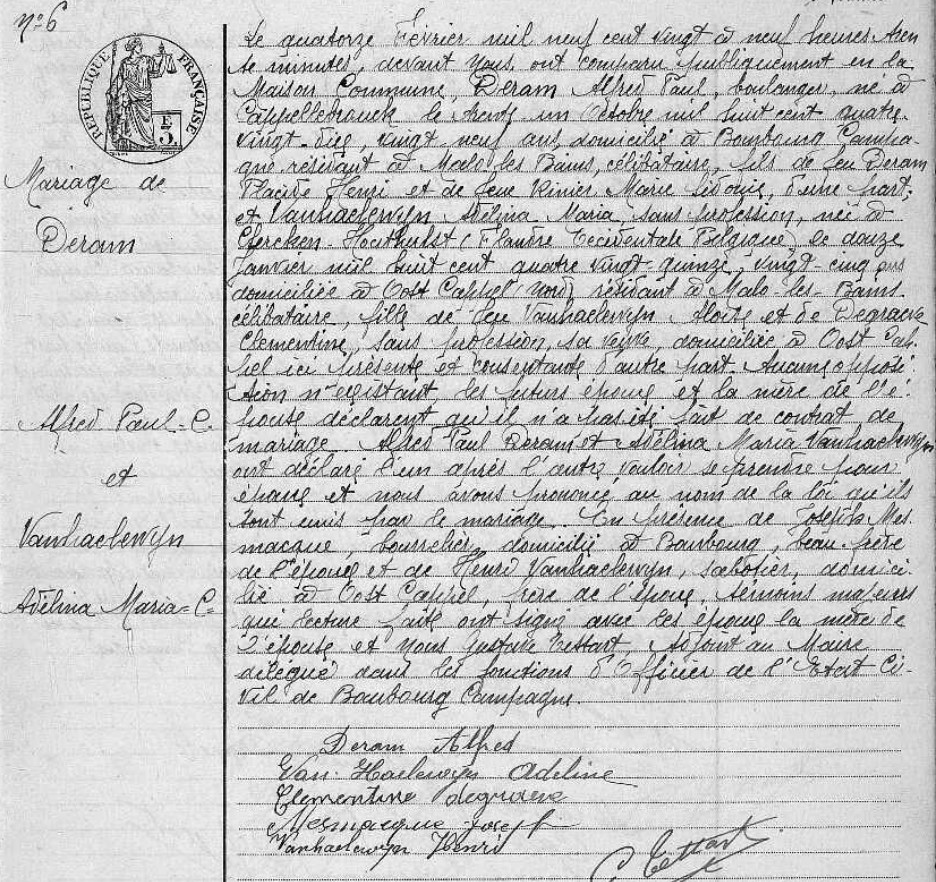 nº 6
RÉPUBLIQUE FRANÇAISE
3.
Mariage de
Deram
Alfred Paul = C.
et
Vanhaelewyn
Adélina Maria = C.
Le quatorze Février mil neuf cent vingt à neuf heures tren
te minutes, devant Nous, ont comparu publiquement en la
Maison Commune, Deram Alfred Paul, boulanger, né à
Cappellebrouck le trente un Octobre mil huit cent quatre-
vingt-dix, vingt neuf ans, domicilié à Bourbourg Campa-
gne, résidant à Malo-les Bains, célibataire, fils de feu Deram
Placide Henri et de feue Vinier Marie Sidonie, d'une part,
et Vanhaelewyn Adélina Maria, sans profession, née à
Clercken-Houthulst (Flandre Occidentale Belgique) le douze
Janvier mil huit cent quatre vingt-quinze, vingt-cinq ans
domiciliée à Oost Cappel Nord résidant à Malo-les-Bains
célibataire, fille de feu Vanhaelewyn Aloïse et de Degraeve
Clémentine, sans profession, sa veuve, domiciliée à Oost Cap-
pel ici présente et consentante d'autre part. Aucune opposi-
tion n'existant, les futurs époux et la mère de l'é-
pouse déclarent qu'il n'a pas été fait de contrat de
mariage. Alfred Paul Deram et Adélina Maria Vanhaelewyn
ont déclaré l'un après l'autre vouloir se prendre pour
époux et nous avons prononcé au nom de la loi qu'ils
sont unis par le mariage. En présence de Joseph Mes-
macque, bourrelier, domicilié à Bourbourg, beau-frère
de l'époux et de Henri Vanhaelewyn, sabotier, domici-
lié à Oost Cappel, frère de l'épouse, témoins majeurs
qui lecture faite ont signé avec les époux la mère de
l'épouse et Nous Gustave Tettart, Adjoint au Maire
délégué dans les fonctions d'Officier de l'Etat Ci-
vil de Bourbourg Campagne.
Deram Alfred
Van Haelewyn Adeline
Clementine Degraeve
Mesmacque Joseph
Vanhaelewyn Henri
Tettart